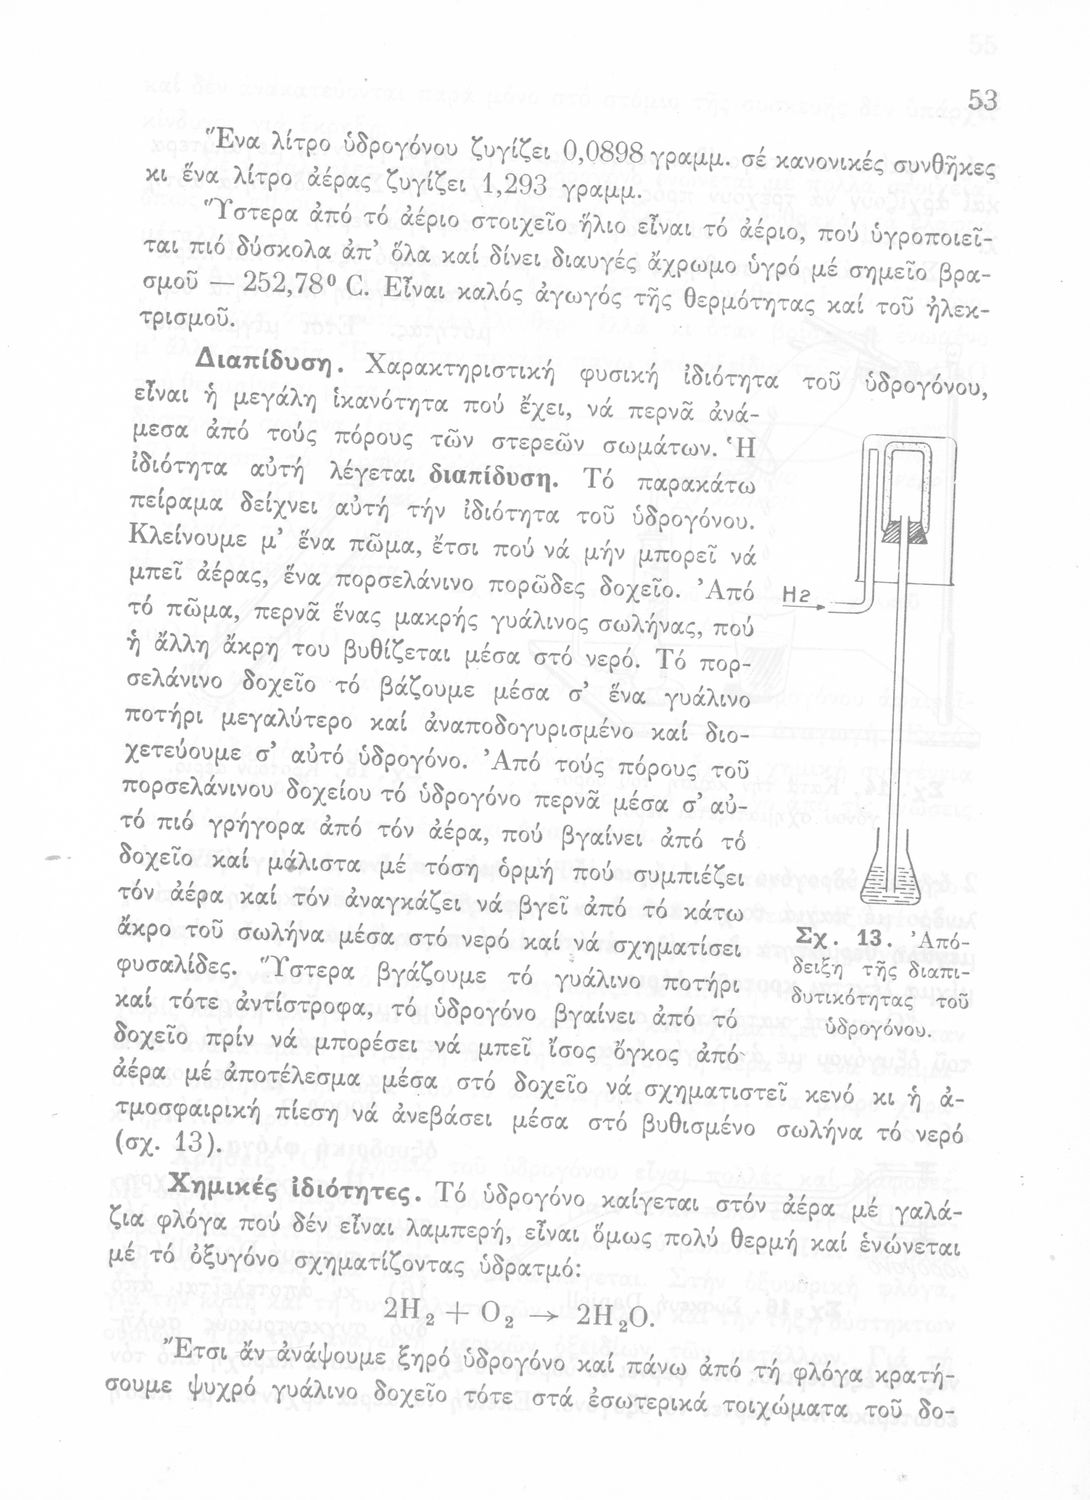 53
Ἕνα λίτρο ὑδρογόνου ζυγίζει 0,0898 γραμμ. σέ κανονικές συνθῆκες
κι ἕνα λίτρο ἀέρας ζυγίζει 1,293 γραμμ.
Ὕστερα ἀπό τό ἀέριο στοιχεῖο ἥλιο εἶναι τό ἀέριο, πού ὑγροποιεῖ-
ται πιό δύσκολα ἀπ’ ὅλα καί δίνει διαυγές ἄχρωμο ὑγρό μέ σημεῖο βρα-
σμοῦ — 252,78° C. Εἶναι καλός ἀγωγός τῆς θερμότητας καί τοῦ ἠλεκ-
τρισμοῦ.
Διαπίδυση. Χαρακτηριστική φυσική ἰδιότητα τοῦ ὑδρογόνου,
εἶναι ἡ μεγάλη ἱκανότητα πού ἔχει, νά περνᾶ ἀνά-
μεσα ἀπό τούς πόρους τῶν στερεῶν σωμάτων. Ἡ
ἰδιότητα αὐτή λέγεται διαπίδυση. Τό παρακάτω
πείραμα δείχνει αὐτή τήν ἰδιότητα τοῦ ὑδρογόνου.
Κλείνουμε μ’ ἕνα πῶμα, ἔτσι πού νά μήν μπορεῖ νά
μπεῖ ἀέρας, ἕνα πορσελάνινο πορῶδες δοχεῖο. Ἀπό
τό πῶμα, περνᾶ ἕνας μακρής γυάλινος σωλήνας, πού
ἡ ἄλλη ἄκρη του βυθίζεται μέσα στό νερό. Τό πορ-
σελάνινο δοχεῖο τό βάζουμε μέσα σ’ ἕνα γυάλινο
ποτήρι μεγαλύτερο καί ἀναποδογυρισμένο καί διο-
χετεύουμε σ’ αὐτό ὑδρογόνο. Ἀπό τούς πόρους τοῦ
πορσελάνινου δοχείου τό ὑδρογόνο περνᾶ μέσα σ’ αὐ-
τό πιό γρήγορα ἀπό τόν ἀέρα, πού βγαίνει ἀπό τό
δοχεῖο καί μάλιστα μέ τόση ὁρμή πού συμπιέζει
τόν ἀέρα καί τόν ἀναγκάζει νά βγεῖ ἀπό τό κάτω
ἄκρο τοῦ σωλήνα μέσα στό νερό καί νά σχηματίσει
φυσαλίδες. Ὕστερα βγάζουμε τό γυάλινο ποτήρι
καί τότε ἀντίστροφα, τό ὑδρογόνο βγαίνει ἀπό τό
δοχεῖο πρίν νά μπορέσει νά μπεῖ ἴσος ὄγκος ἀπό
ἀέρα μέ ἀποτέλεσμα μέσα στό δοχεῖο νά σχηματιστεῖ κενό κι ἡ ἀ-
τμοσφαιρική πίεση νά ἀνεβάσει μέσα στό βυθισμένο σωλήνα τό νερό
(σχ. 13).
H2
Σχ. 13. Ἀπό-
δειξη τῆς διαπι-
δυτικότητας τοῦ
ὑδρογόνου.
Χημικές ἰδιότητες. Τό ὑδρογόνο καίγεται στόν ἀέρα μέ γαλά-
ζια φλόγα πού δέν εἶναι λαμπερή, εἶναι ὅμως πολύ θερμή καί ἑνώνεται
μέ τό ὀξυγόνο σχηματίζοντας ὑδρατμό:
2H₂ + O₂ → 2H₂O.
Ἔτσι ἄν ἀνάψουμε ξηρό ὑδρογόνο καί πάνω ἀπό τή φλόγα κρατή-
σουμε ψυχρό γυάλινο δοχεῖο τότε στά ἐσωτερικά τοιχώματα τοῦ δο-